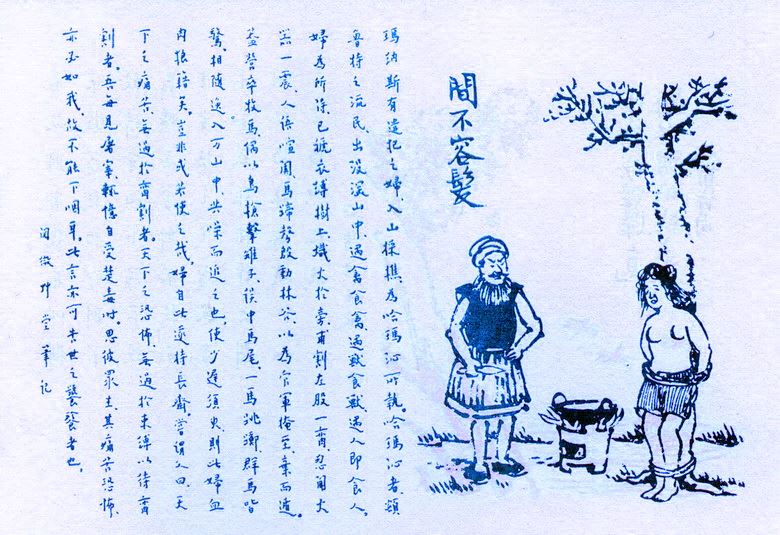 間不容髮
瑪納斯有遣犯之婦、入山採樵、為哈瑪沁所執。哈瑪沁者、額
魯特之流民、出沒深山中、遇禽食禽、遇獸食獸、遇人即食人。
婦為所得、已褫衣縛樹上、熾火於旁、甫割左股一臠、忽聞火
器一震、人語喧闐、馬蹄聲殷動林谷、以為官軍掩至、棄而遁。
蓋營卒牧馬、偶以鳥槍擊雉子、誤中馬尾、一馬跳擲、群馬皆
驚、相隨逸入万山中、共噪而追之也。使少遲須臾、則此婦血
肉狼藉矣。豈非或若使之哉。婦自此遂持長齋、嘗謂人曰、天
下之痛苦、無過於臠割者。天下之恐怖、無過於束縛以待臠
割者。吾每見屠宰、輒憶自受楚毒時。思彼眾生、其痛苦恐怖、
亦必如我、故不能下咽耳。此言亦可告世之饕餮者也。
閱微艸堂筆記